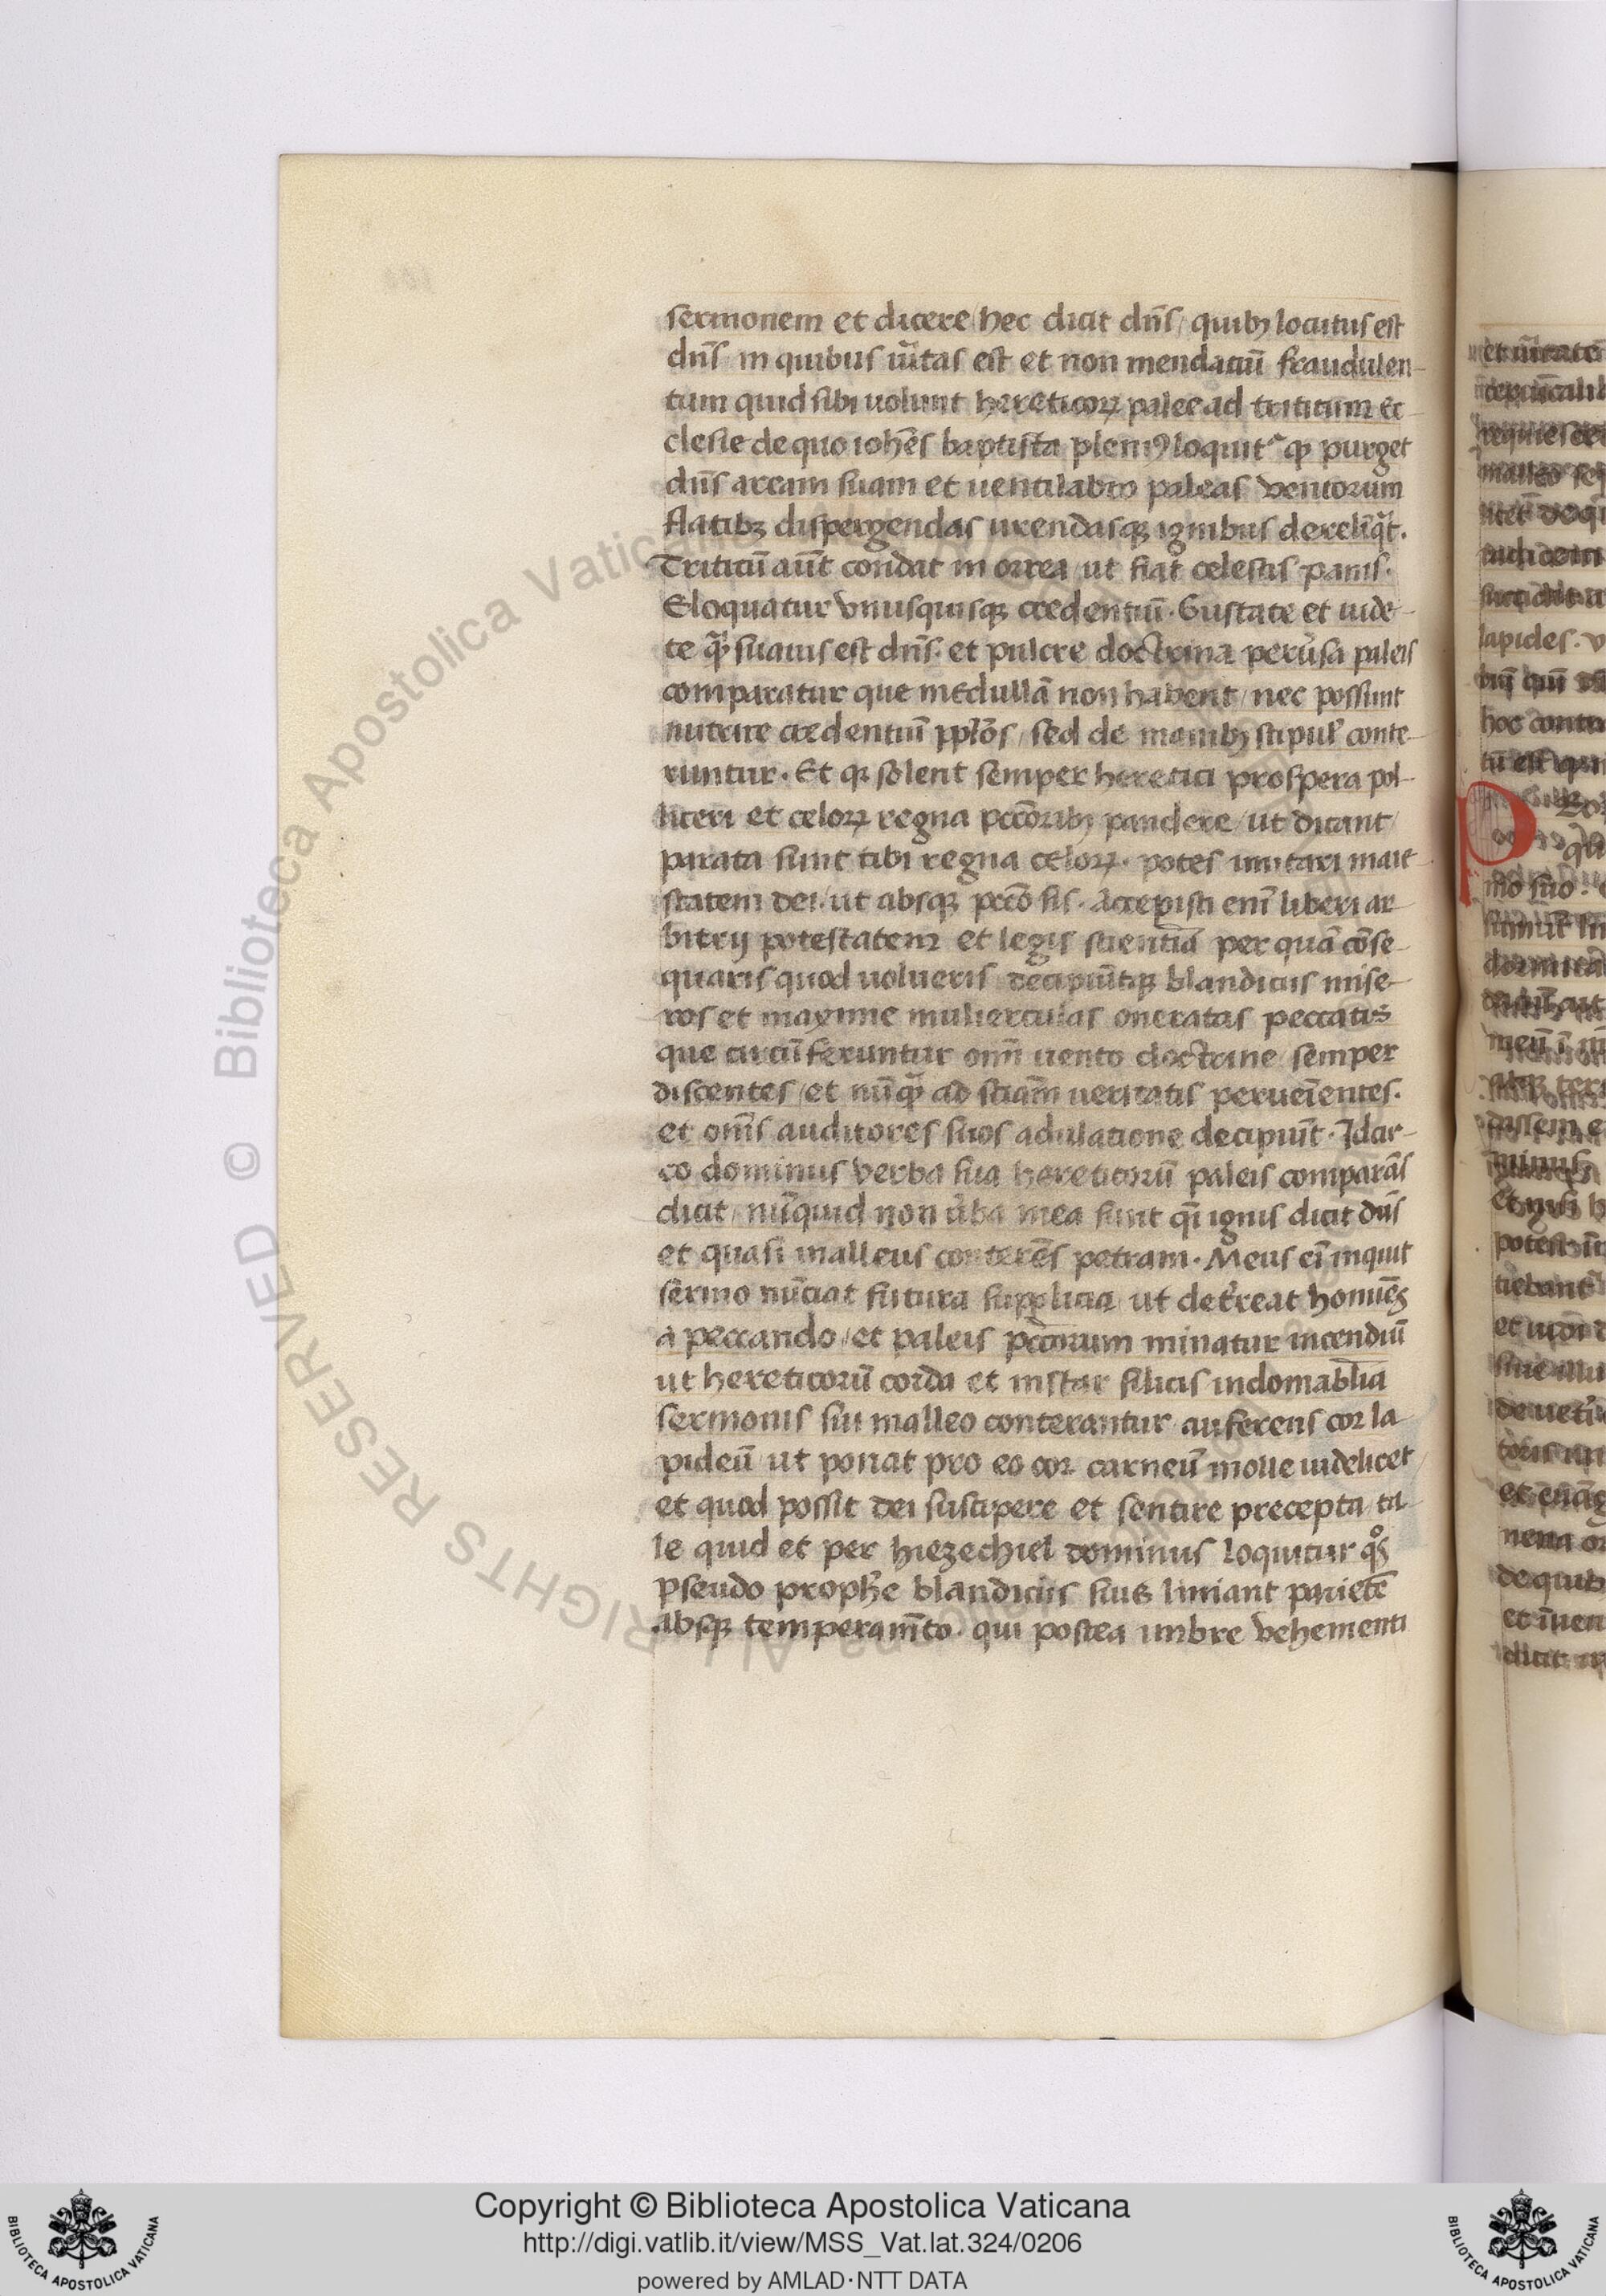 sermonem et dicere / hec dicit dn̄s / quibꝫ locutus est
dn̄s in quibus ūitas est et non mendatiū fraudulen-
tum quid sibi uolunt hereticoꝝ palee ad triticum ec
clesie de quo ioh̄es baptista pleniꝰ loquit᷑ ꝙ purget
dn̄s aream suam et uentilabro paleas ventorum
flatibꝫ dispergendas urendasqꝫ ignibus derelīqͣt.
Triticū aūt condat in orrea / ut fiat celestis panis.
Eloquatur vnusquisqꝫ credentiū. Gustate et uide-
te qͣ̄ suauis est dn̄s. et pulcre doctrina peruͥsa paleis
comparatur que medullā non habent / nec possunt
nutrire credentiū pplōs / sed de manibꝫ stipul᷑ conte-
runtur. Et qꝛ solent semper heretici prospera pol-
liceri et celoꝝ regna pccōribꝫ pandere / ut dicant /
parata sunt tibi regna celoꝝ. potes imitari maie-
statem dei / ut absqꝫ pccō sis. Accepisti enī liberi ar
bitrij potestatem et legis scientiā per quā cōse-
quaris quod uolueris decipiūtqꝫ blandiciis mise-
ros et maxime mulierculas oneratas peccatis
que circūferuntur omī uento doctrine / semper
discentes / et nūqͣ̄ ad sciām ueritatis perueīentes.
et omīs auditores suos adulatione decipiūt. Idcir-
co dominus verba sua hereticorū paleis comparās
dicit / nūquid non ūba mea sunt qͣi ignis dicit dn̄s
et quasi malleus conterēs petram. Meus eī inquit
sermo nūciat futura supplicia ut det᷑reat homīes
a peccando / et paleis pccōrum minatur incendiū
ut hereticorū corda et instar silicis indomablīa
sermonis sui malleo conterantur auferens cor la-
pideū ut ponat pro eo cor carneū molle uidelicet /
et quod possit dei suscipere et sentire precepta / ta-
le quid et per hiezechiel dominus loquitur qͦs̄
pseudo prophēe blandiciis suis liniant parietē
absqꝫ temperamīto. qui postea imbre vehementi
lapides. v
© Biblioteca Apostolica Vaticana
ALL RIGHTS RESERVED
Copyright © Biblioteca Apostolica Vaticana
http://digi.vatlib.it/view/MSS_Vat.lat.324/0206
powered by AMLAD·NTT DATA
BIBLIOTECA APOSTOLICA VATICANA
BIBLIOTECA APOSTOLICA VATICANA